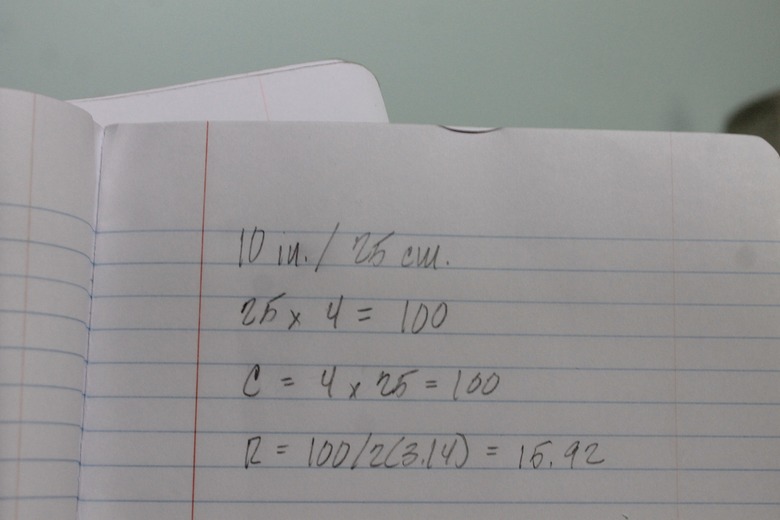 10 in. / 25 cm.
25 x 4 = 100
C = 4 x 25 = 100
R = 100/2(3.14) = 15.92